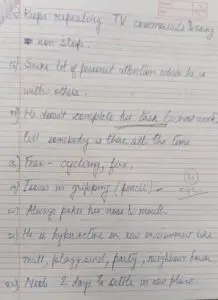 Keeps repeating TV commercials & song
non-stop.
Seeks lot of personal attention while he is
with others.
He doesn't complete his task (school work)
till somebody is there all the time
18) Fear - cycling, fire.
19) Issues in gripping (pencil) -
20) Always pokes his nose & mouth.
21) He is hyperactive in new environment like
mall, playground, party, neighbour house
22) Needs 2 days to settle in new place.